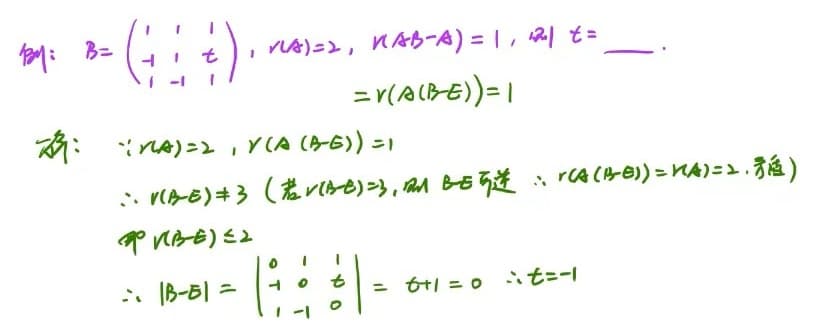 例: B=(1 1 1
-1 1 t
1 -1 1), r(A)=2, r(AB-A)=1, 则 t= ___ .
=r(A(B-E))=1
解: ∵r(A)=2, r(A(B-E))=1
∴ r(B-E)≠3 (若r(B-E)=3, 则 B-E可逆 ∴ r(A(B-E))=r(A)=2.矛盾)
即 r(B-E)≤2
∴ |B-E| = |0 1 1
-1 0 t
1 -1 0| = t+1=0 ∴t=-1